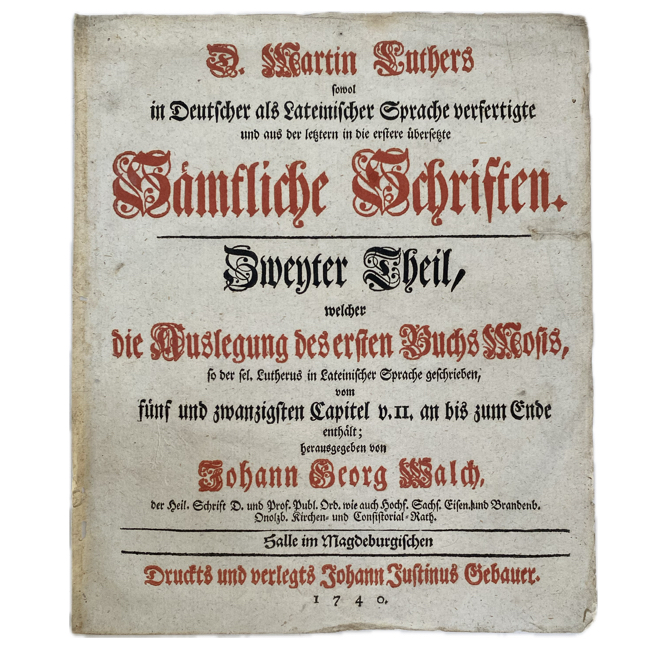 D. Martin Luthers
sowol
in Deutscher als Lateinischer Sprache verfertigte
und aus der letztern in die erstere übersetzte
Sämtliche Schriften.
Zweyter Theil,
welcher
die Auslegung des ersten Buchs Mosis,
so der sel. Lutherus in Lateinischer Sprache geschrieben,
vom
fünf und zwanzigsten Capitel v. 11. an bis zum Ende
enthält;
herausgegeben von
Johann Georg Walch,
der Heil. Schrift D. und Prof. Publ. Ord. wie auch Hochf. Sachs. Eisen. und Brandenb.
Onolzb. Kirchen- und Consistorial-Rath.
Halle im Magdeburgischen
Druckts und verlegts Johann Justinus Gebauer.
1740.